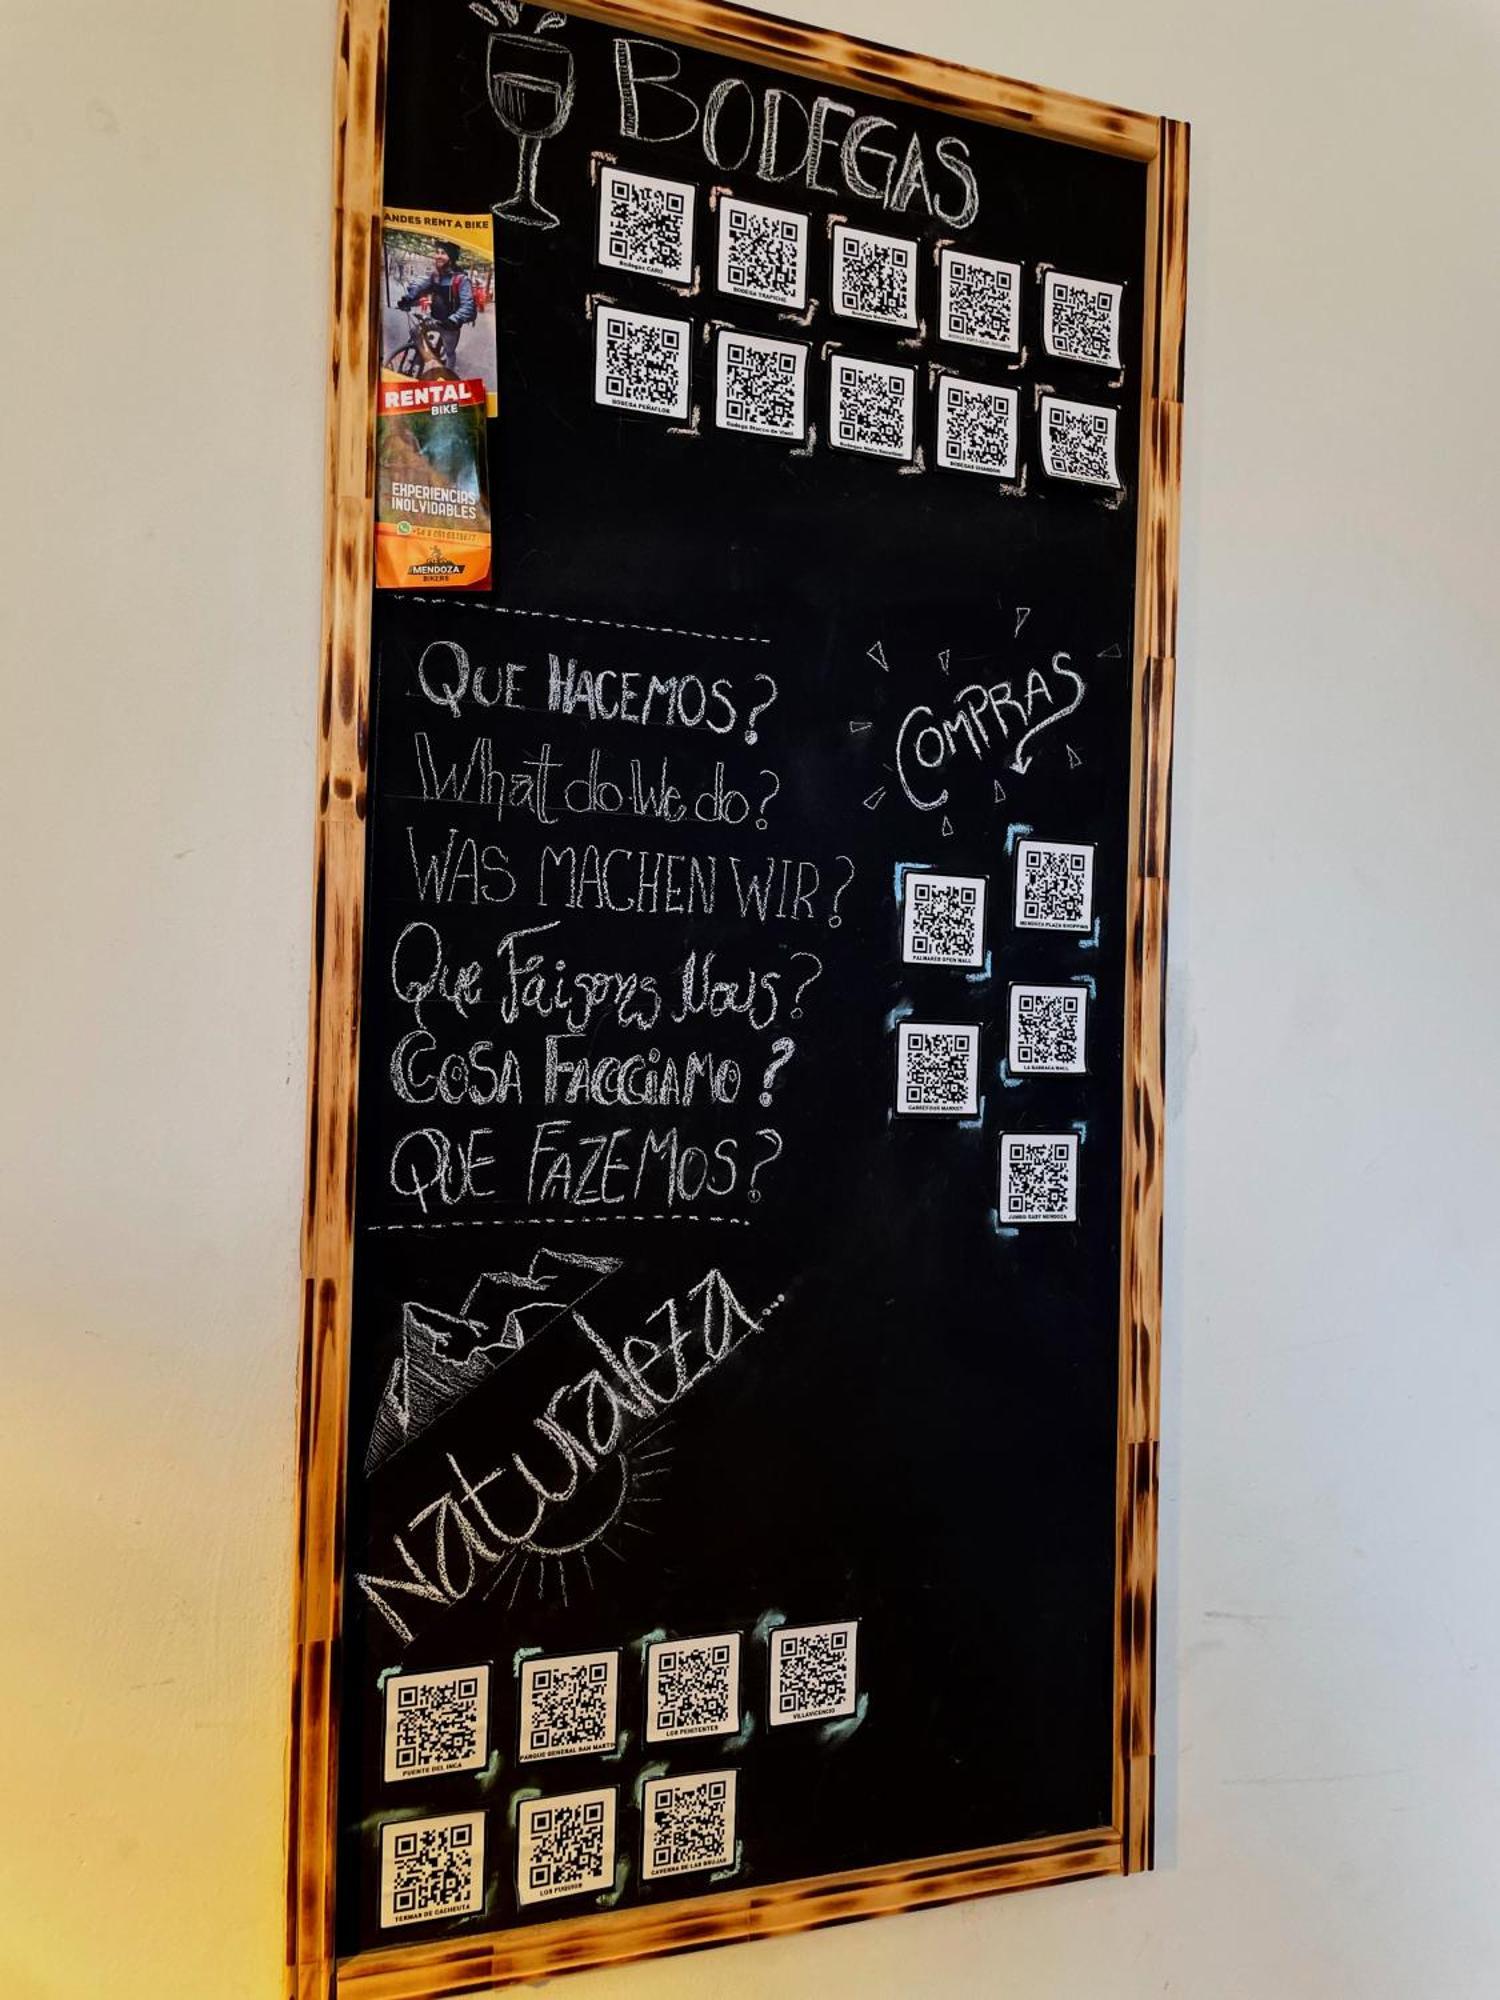 BODEGAS
ANDES RENT A BIKE
RENTAL
BIKE
EXPERIENCIAS
INOLVIDABLES
MENDOZA
BIKERS
Bodegas CARO
BODEGA TRAPICHE
BODEGA PEÑAFLOR
BODEGAS CHANDON
QUE HACEMOS?
What do We do?
WAS MACHEN WIR?
Que Faisons Nous?
COSA FACCCiAMO?
QUE FAZEMOS?
COMPRAS
MENDOZA PLAZA SHOPPING
PALMARES OPEN MALL
LA BARRACA MALL
CARREFOUR MARKET
JUMBO EASY MENDOZA
Naturaleza...
PUENTE DEL INCA
PARQUE GENERAL SAN MARTIN
LOS PENITENTES
VILLAVICENCIO
TERMAS DE CACHEUTA
LOS PUQUIOS
CAVERNA DE LAS BRUJAS